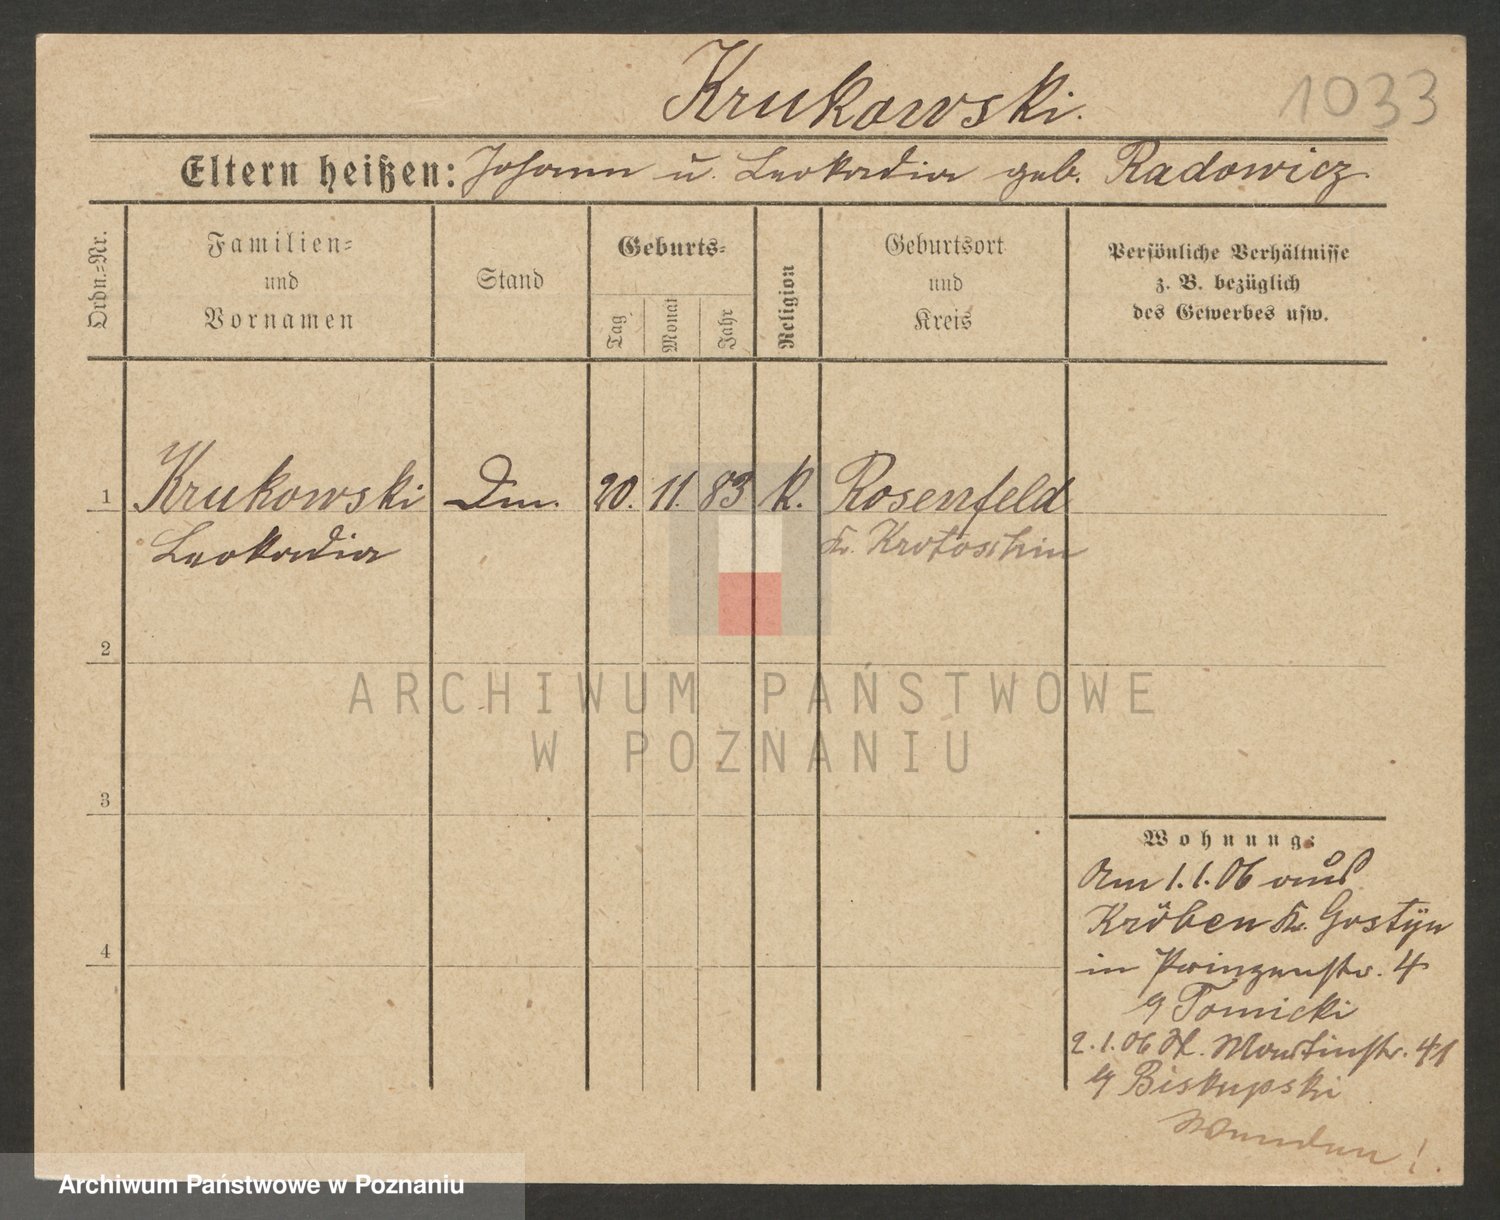 Krukowski.
1033
Eltern heißen: Johann u. Leokadia geb. Radowicz.
Ordn.=Nr.
Familien=
und
Vornamen
Stand
Geburts=
Tag
Monat
Jahr
Religion
Geburtsort
und
Kreis
Persönliche Verhältnisse
z. B. bezüglich
des Gewerbes usw.
1 Krukowski 20. 11. 83 K. Rosenfeld
Leokadia Kr. Krotoschin
2
ARCHIWUM PAŃSTWOWE
W POZNANIU
3
Wohnung:
Am 1.1.06 aus
Kröben Kr. Gostyn
in Prinzenstr. 4
Tomicki
2.1.06 St. Martinstr. 41
Biskupski
wenden!
4
Archiwum Państwowe w Poznaniu